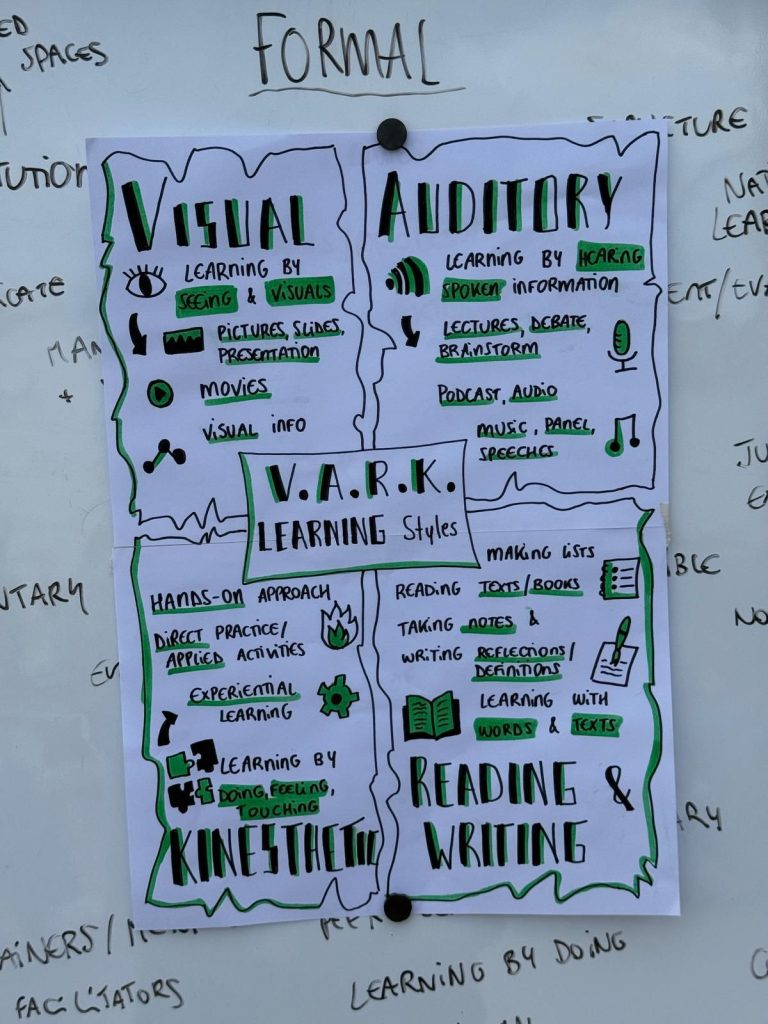 FORMAL
SPACES
VISUAL
LEARNING BY
SEEING & VISUALS
PICTURES, SLIDES,
PRESENTATION
MOVIES
VISUAL INFO
AUDITORY
LEARNING BY HEARING
SPOKEN INFORMATION
LECTURES, DEBATE,
BRAINSTORM
PODCAST, AUDIO
MUSIC, PANEL,
SPEECHES
V.A.R.K.
LEARNING Styles
HANDS-ON APPROACH
DIRECT PRACTICE/
APPLIED ACTIVITIES
EXPERIENTIAL
LEARNING
LEARNING BY
DOING, FEELING,
TOUCHING
KINESTHETIC
MAKING LISTS
READING TEXTS/BOOKS
TAKING NOTES &
WRITING REFLECTIONS/
DEFINITIONS
LEARNING WITH
WORDS & TEXTS
READING &
WRITING
FACILITATORS
LEARNING BY DOING